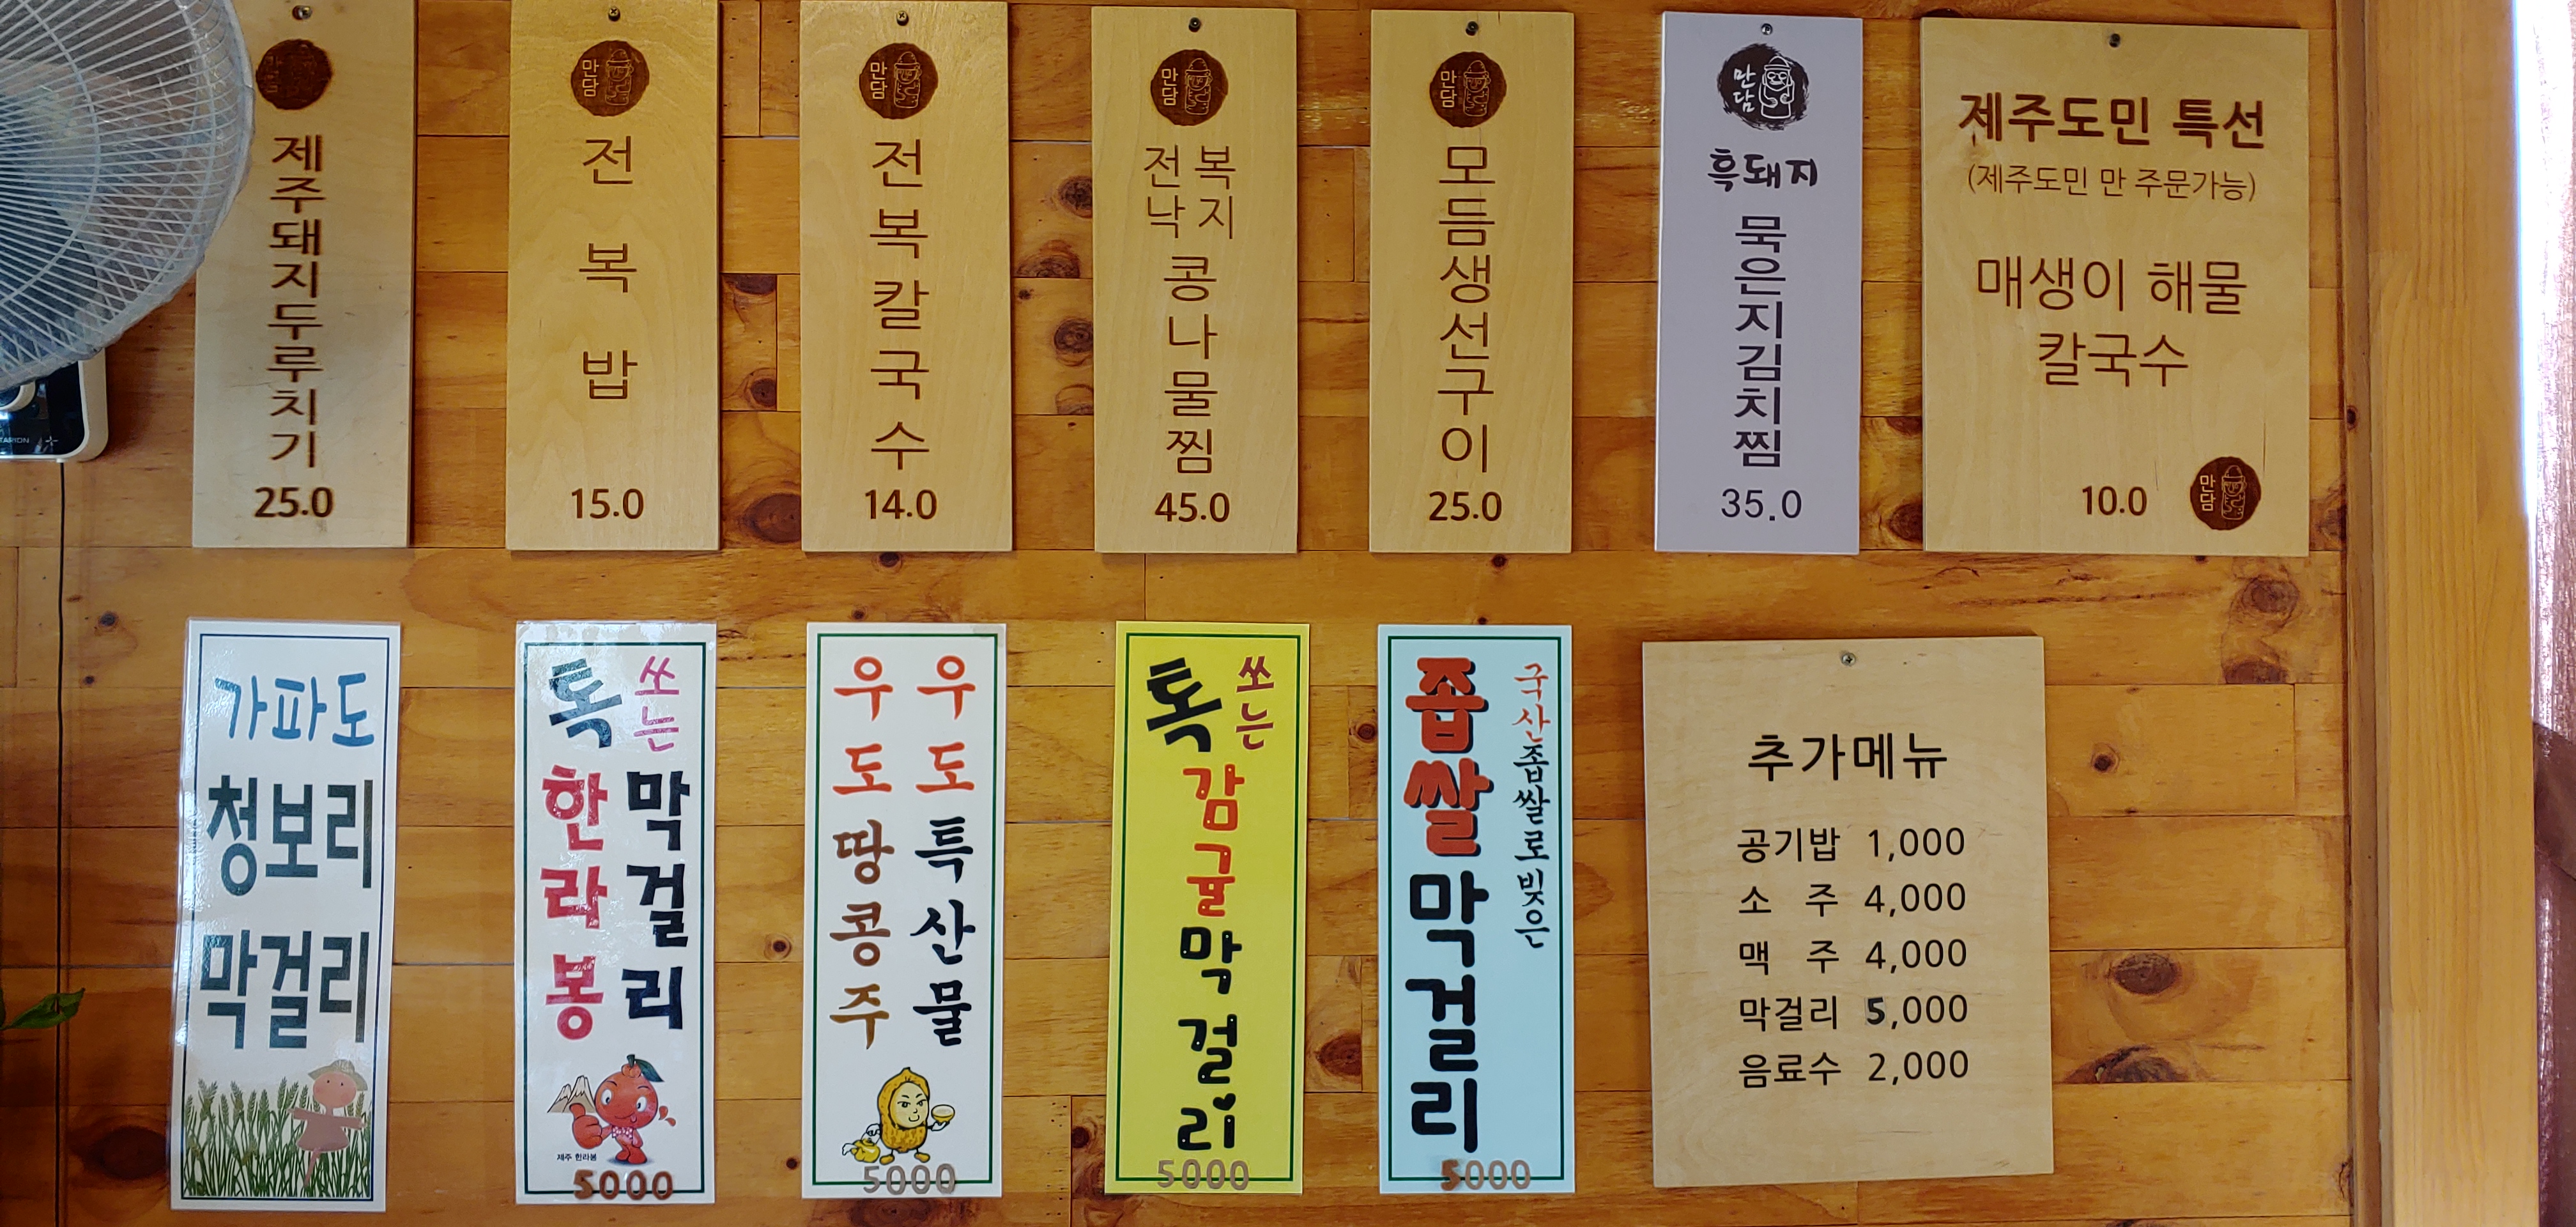 만담
제주돼지두루치기
25.0
만담
전복밥
15.0
만담
전복칼국수
14.0
만담
전복
낙지
콩나물찜
45.0
만담
모듬생선구이
25.0
만담
흑돼지
묵은지김치찜
35.0
제주도민 특선
(제주도민 만 주문가능)
매생이 해물
칼국수
10.0
만담
가파도
청보리
막걸리
톡 쏘는
한라봉
막걸리
제주 한라봉
5000
우도특산물
우도땅콩주
5000
톡 쏘는
감귤막걸리
5000
국산좁쌀로빚은
좁쌀막걸리
5000
추가메뉴
공기밥 1,000
소 주 4,000
맥 주 4,000
막걸리 5,000
음료수 2,000